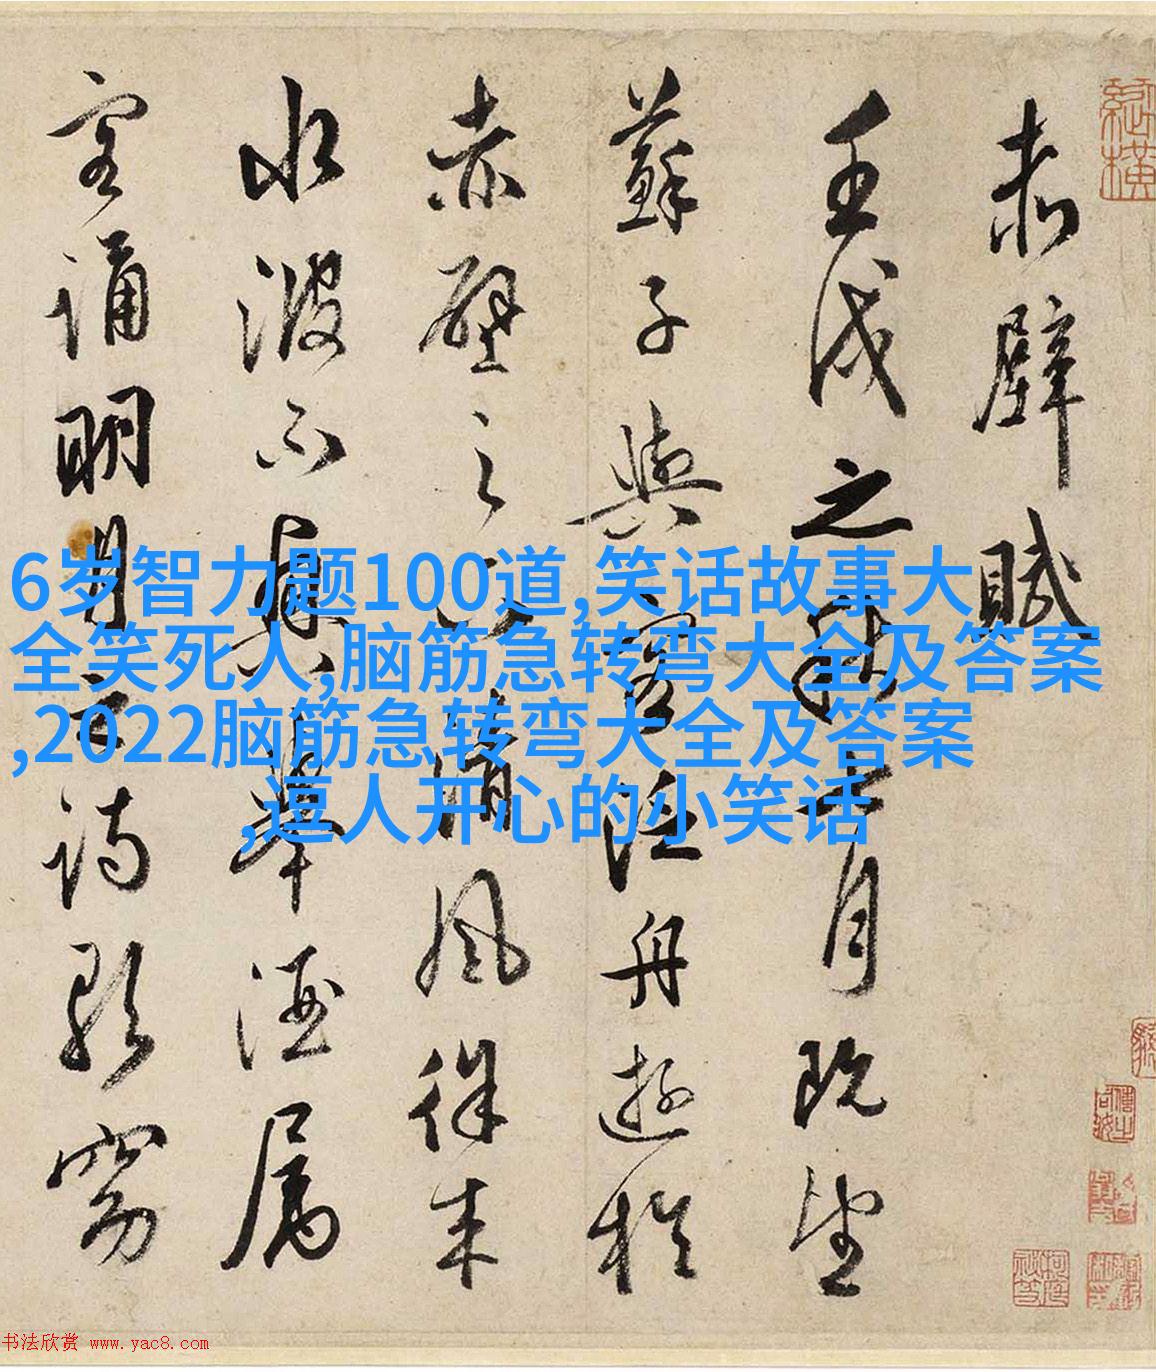 赤壁賦
壬戌之秋七月既望
蘇子與客泛舟遊於
赤壁之下清風徐来
水波不興舉酒属
客誦明月之詩歌窈
6岁智力题100道,笑话故事大
全笑死人,脑筋急转弯大全及答案
,2022脑筋急转弯大全及答案
,逗人开心的小笑话
书法欣赏 www.yac8.com